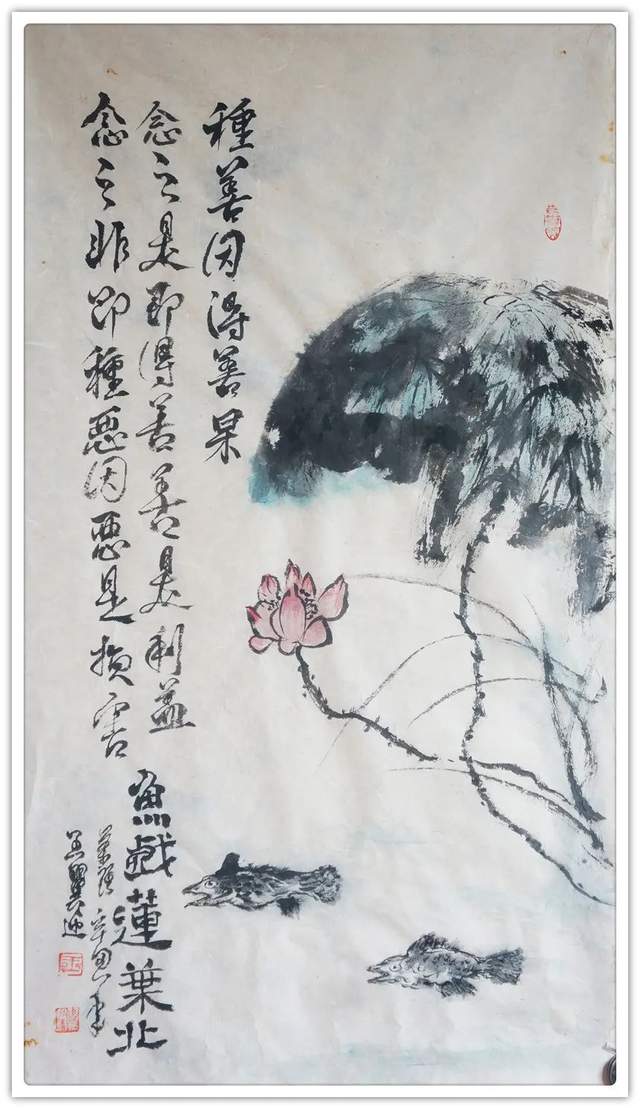 種善因得善果
念之是即得善善是利益
念之非即種惡因惡是損害
魚戯蓮葉北
辛丑年